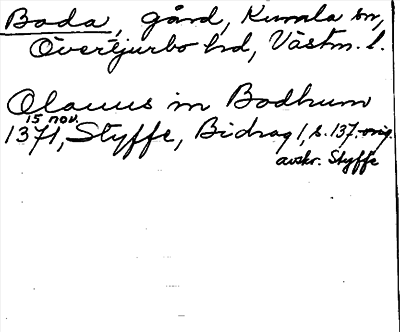 Boda, gård, Kumla sn,
Övertjurbo hd, Västm. l.
Olauus in Bodhum
15 nov.
1371, Styffe, Bidrag 1, s. 137. orig.
avskr. Styffe